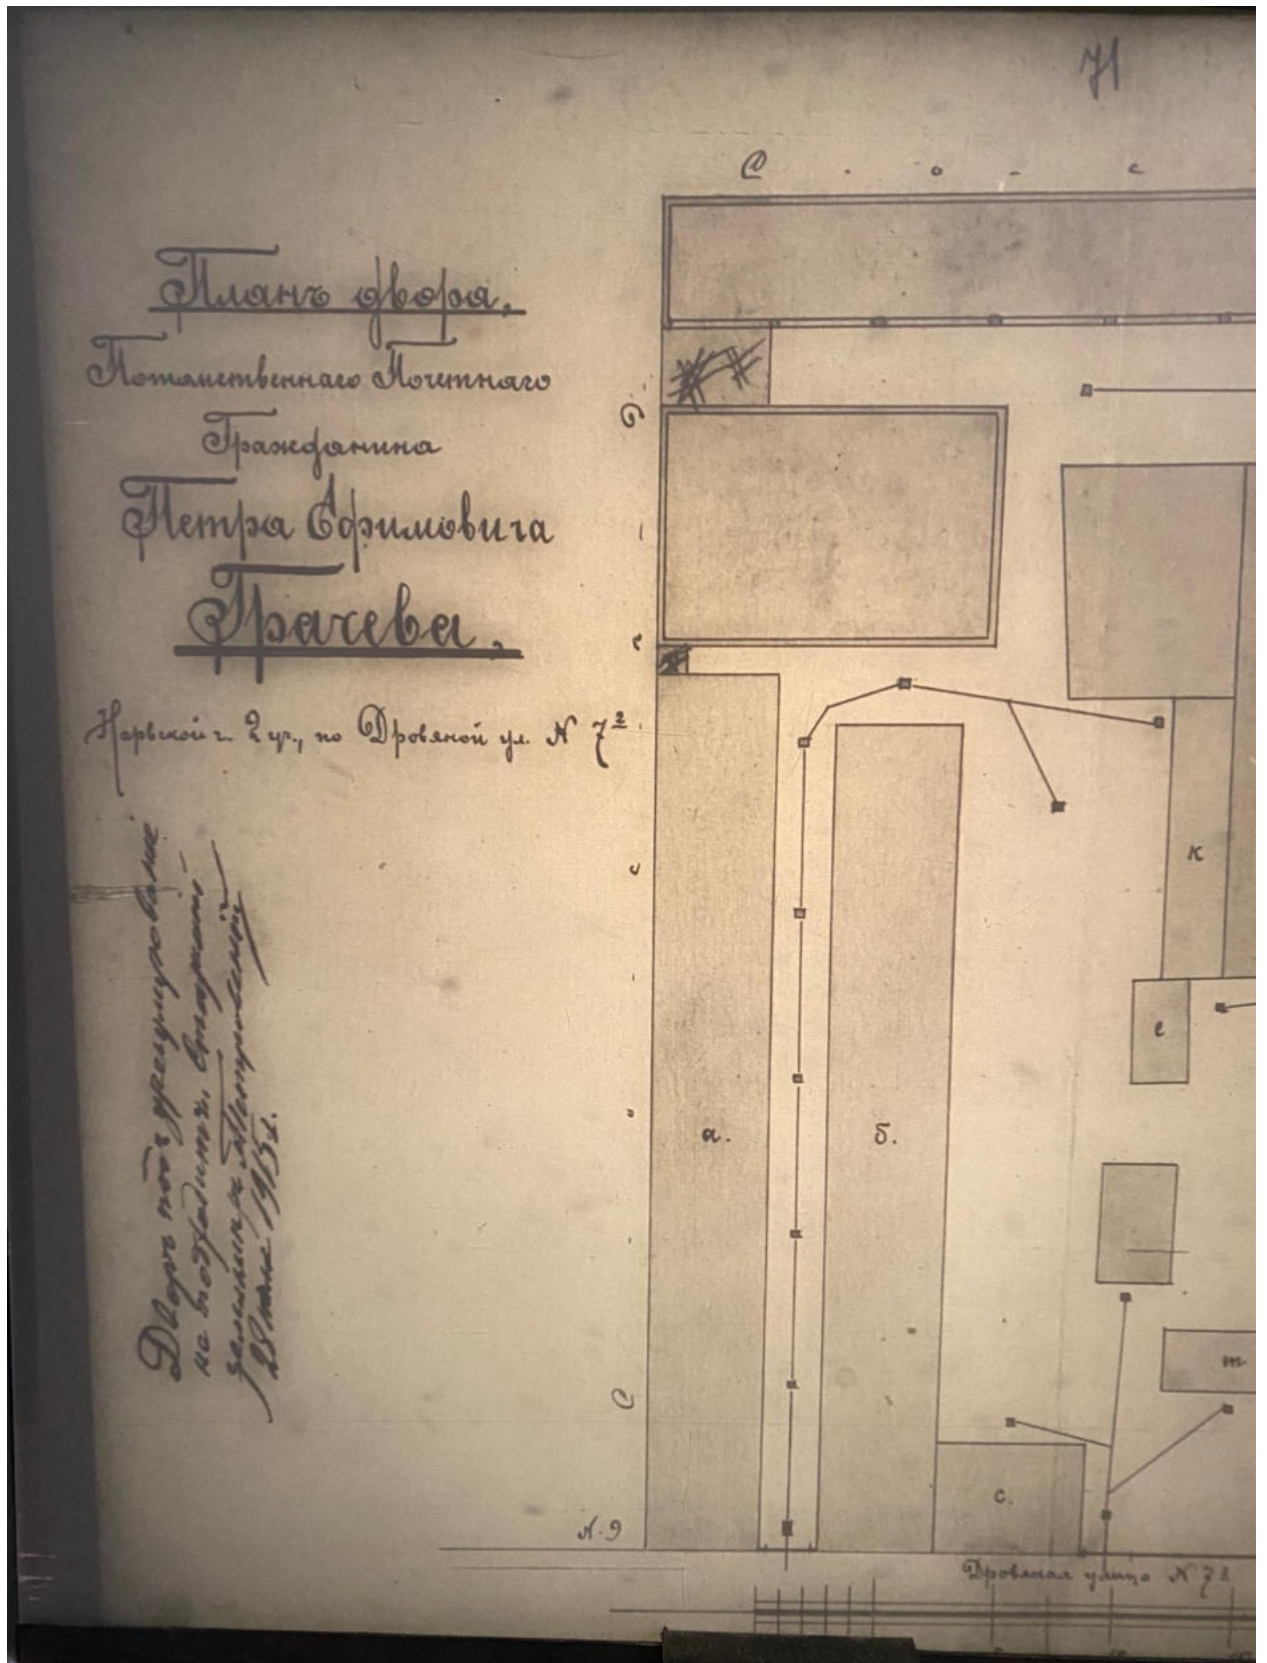 71
С . о - с
Планъ двора.
Потомственнаго Почетнаго
Гражданина
Петра Ефимовича
Грачева.
Нарвской ч. 2 уч., по Дровяной ул. N 7²
Дворъ подъ
на
28 1915 г.
к
е
а.
б.
т
с.
N. 9
Дровяная улица N 7²